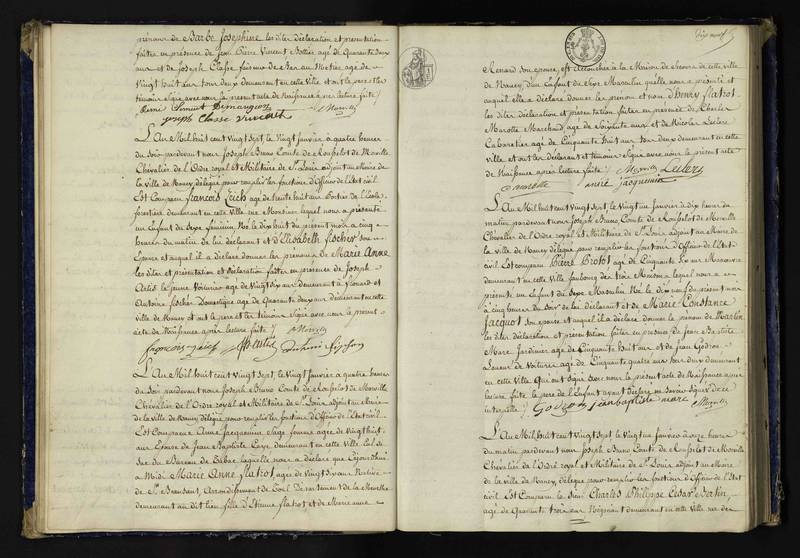 prénoms de Barbe Josephine les dites déclaration et présentation
faites en présence de Jean Pierre Vincent Bottier agé de quarante deux
ans et de Joseph Classe faiseur de Bas au Métier agé de
vingt huit ans tous deux demeurant en cette Ville et ont le pere et les
témoins signé avec nous le présent acte de Naissance après lecture faite
Joseph Classe Vincent
L'An Mil huit cent vingt sept, le vingt Janvier à quatre heures
du soir pardevant nous Joseph Bruno Comte de Rousselot de Morville
Chevalier de l'Ordre royal et Militaire de St. Louis adjoint au Maire de
la ville de Nancy délégué pour remplir les fonctions d'Officier de l'Etat civil
Est Comparu François Reich agé de trente huit ans Portier de l'Ecole
forestière demeurant en cette Ville lequel nous a présenté
un Enfant du Sexe féminin Né le dix huit du présent mois à cinq
heures du matin de lui déclarant et d'Elisabeth fischer son
Epouse et auquel il a déclaré donner les prénoms de Marie Anne
les dites présentation et déclaration faites en présence de Joseph
Artis le jeune Voiturier agé de vingt six ans demeurant à
Antoine fischer Domestique agé de quarante deux ans demeurant en cette
ville de Nancy et ont le pere et les témoins signé avec nous le présent
acte de Naissance après lecture faite
françois reich
L'An Mil huit cent vingt Sept, le vingt Janvier à quatre heures
du Soir pardevant nous Joseph Bruno Comte de Rousselot de Morville
Chevalier de l'Ordre royal et Militaire de St. Louis adjoint au Maire
de la ville de Nancy délégué pour remplir les fonctions d'Officier de l'Etat civil
Est Comparue Anne Jacquemin Sage femme agée de vingt huit
ans Epouse de Jean Baptiste demeurant en cette Ville
laquelle nous a déclaré que
à Midi Marie Anne flatrot agée de vingt six ans Native
de St. Baussant, Arrondissement de Toul Département de la Meurthe
demeurant au dit lieu fille d'Etienne flatrot et de Marie anne
dix neuf
Renard son épouse, est accouchée à la Maison de Secours de cette ville
de Nancy, d'un Enfant du Sexe Masculin qu'elle nous a présenté et
auquel elle a déclaré donner le prénom et nom d'henry flatrot
les dites déclaration et présentation faites en présence de Charles
Marotte Marchand agé de Soixante ans et de Nicolas Leclere
Cabaretier agé de Cinquante huit ans tous deux demeurant en cette
ville et ont les déclarant et témoins signé avec nous le présent acte
de Naissance après lecture faite
Marotte anne jacquemin Leclere
L'An Mil huit cent vingt Sept, le vingt un Janvier à dix heures du
matin pardevant nous Joseph Bruno Comte de Rousselot de Morville
Chevalier de l'Ordre royal et Militaire de St. Louis adjoint au Maire de
la Ville de Nancy délégué pour remplir les fonctions d'Officier de l'Etat
civil Est comparu Pierre Brotot agé de Cinquante Six ans Manoeuvre
demeurant en cette Ville faubourg des trois Maisons lequel nous a
présenté un Enfant du Sexe Masculin Né le dix neuf du présent mois
à cinq heures du Soir de lui déclarant et de Marie Constance
Jacquot son épouse et auquel il a déclaré donner le prénom de Martin
les dites déclaration et présentation faites en présence de Jean Baptiste
Marc Jardinier agé de Cinquante huit ans et de Jean Godron
Loueur de Voitures agé de Cinquante quatre ans tous deux demeurant
en cette Ville Qui ont signé avec nous le présent acte de Naissance après
lecture faite le pere de l'Enfant ayant déclaré ne savoir signer de ce
interpellé
Godron jean baptiste marc
L'An Mil huit cent vingt Sept, le vingt un Janvier à onze heures
du matin pardevant nous Joseph Bruno Comte de Rousselot de Morville
Chevalier de l'Ordre royal et Militaire de St. Louis adjoint au Maire
de la Ville de Nancy délégué pour remplir les fonctions d'Officier de l'Etat
civil Est Comparu le Sieur Charles Philippe Cesar Bertin,
agé de Quarante trois ans Négociant demeurant en cette Ville rue des